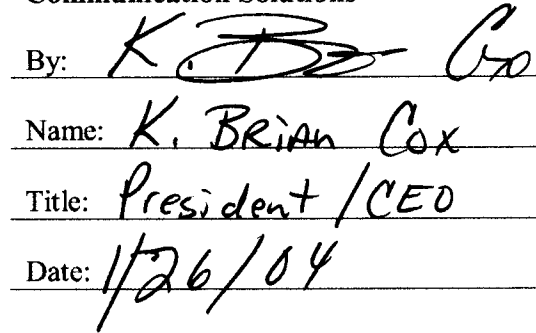 Communication Solutions
By: K. B Cox
Name: K. Brian Cox
Title: President / CEO
Date: 1/26/04